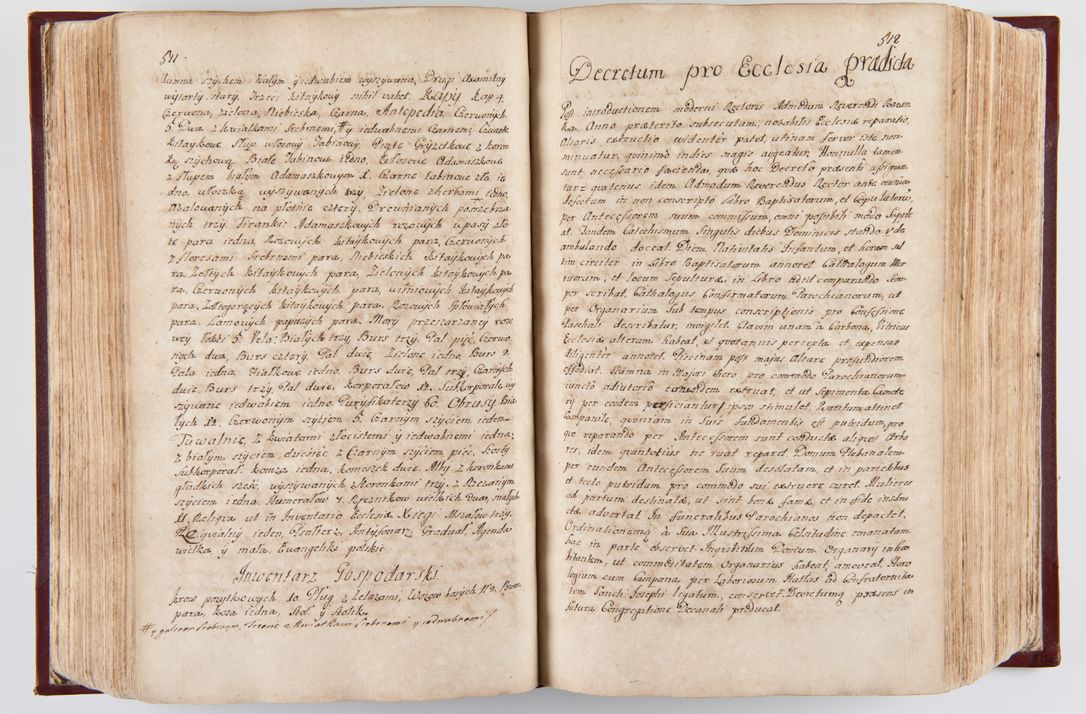 511.
szychem białym y jedwabiem wyszywana, Drugi Axamitny
wytarty stary, trzeci kitaykowy nihil valet. Kapy kap 4.
Czerwona, zielona, Niebieska, Czarna. Antepedia Czerwonych
5. Dwa z kwiatkami Srebrnemi, # y jedwabnemi Czarnemi, Czwarte
kitaykowe Słup włosowy Tabinowy, Piąte
szychową Białe Tabinowe jedno, Adamaszkowe
z Słupem białym Adamaszkowym 1. Czarne tabinowe jedno
dno, włoczką wyszywanych trzy, Zielone z herbami jedno,
Malowanych na płotnie cztery. Drewnianych posrebrza-
nych trzy. Firanki Adamaszkowych rozowych upasy zło
te para iedna Rozowych kitaykowych para, Czerwonych
z Floresami Srebrnemi para, Niebieskich kitaykowych pa-
ra, Zołtych kitaykowych para, Zielonych kitaykowych pa-
ra, Czerwonych kitaykowych para, wisniowych kitaykowych
para, Zołtogorących kitaykowych para, Rozowych Spłowiałych
para, Lamowych papuzych para. Mory przeszarzaney rozo
wey 5. Vela: Białych trzy, Burs trzy, Pal pięć, Czerwo
nych dwa, Burs cztery, Pal dwie, Zielone iedno, Burs 2.
Pala iedna, Fiałkowe iedno, Burs dwie, Pal trzy, Czarnych
dwie, Burs trzy, Pal dwie, korporałow 12. Sukkorporale wy
szywane iedwabiem iedno Puryfikaterzy 60. Obrusy Bia
łych 12. Czerwonym szyciem 5. Czarnym szyciem ieden
Tuwalnie, z kwiatami złocistemi y iedwabnemi iedna,
z białym szyciem dziesięć z Czarnym szyciem pięć,
Sukkorporał. komza iedna, komeszek dwie, Alby z koronkami
gładkich sześć, wyszywanych z koronkami trzy, z Rzezanym
szyciem iedna. Humerałow 7. Ręcznikow wielkich dwa, małych
11. Religia ut in Inventario Ecclesiæ Xsięgi Mszałow trzy,
Requialny ieden, Psałterz, Antyfonarz, Graduał, Agenda
wielka y mała, Evangeliki polskie
Inwentarz Gospodarski.
krow pozytkowych 10. Pług z Zelazami, Wozow bosych
para, koza iedna, Stoł y Stołik.
# y galonem Srebrnym, Trzecie z kwiatkami Srebrnemi y iedwabnemi /
512
Decretum pro Ecclesia prædicta
Post introductionem moderni Rectoris Admodum Reverendi
Anno præterito subsecutam, notabilis Ecclesiæ reparatio,
Altaris extructio evidenter patet, utinam fervor iste non
minuatur, quinimò indies magis augeatur, Nonnulla tamen
sunt necessario facienda, quæ hoc Decreto præsenti assignan
tur quatenus idem Admodum Reverendus Rector ante omnia
defectum in non conscripto Libro Baptisatorum, et Copulatorum,
per Antecessorem suum commissum, omni possibili modo supple
at. Tandem Catechismum Singulis diebus Dominicis stando v de
ambulando doceat. Diem Nativitatis Infantium, et horam sal
tim circiter in Libro Baptisatorum annotet. Cathalogum Mor
tuorum, et locum Sepulturæ, in Libro ad id comparando sem
per scribat. Cathalogus Confirmatorum Parochianorum, ut
per Organarium sub tempus conscriptionis pro Confessione
Paschali describatur, invigilet. Clavim unam à Carbona, Vitricus
Ecclesiæ alteram habeat, et quotannis percepta et expensas
diligenter annotet. Piscinam post majus Altare profundiorem
effodiat. Scamna in Majori Choro pro commodo Parochianorum
juncto adiutorio eorundem extruat, et ut Sepimenta Cæmete
rij per eosdem perficiantur ipsos stimulet. Quantum attinet
Campanile, quoniam in suis fundamentis est putridum, pro
quo reparando per Antecessorem sunt conductæ aliquot Arbo
res, idem quantotius ne ruat reparet, Domum Plebanalem
per eundem Antecessorem Suum desolatam, et in parietibus
et tecto putridam pro commodo sui extruere curet. Mulieres
ad partum destinatæ, ut sint bonæ famæ, et in fide instru
ctæ advertat. In funeralibus Parochianos non depactet,
Ordinationemq à Sua Illustrissima Celsitudine emanatam
hac in parte observet. Inquilinum Domum Organarij inha
bitantem, ut commoditatem Organarius habeat, amoveat. Horo
logium cum Campana per Laboriosum Hutkas ad Confraternita
tem Sancti Josephi legatum, conservet. Decretumq præsens in
futura Congregatione Decanali producat.